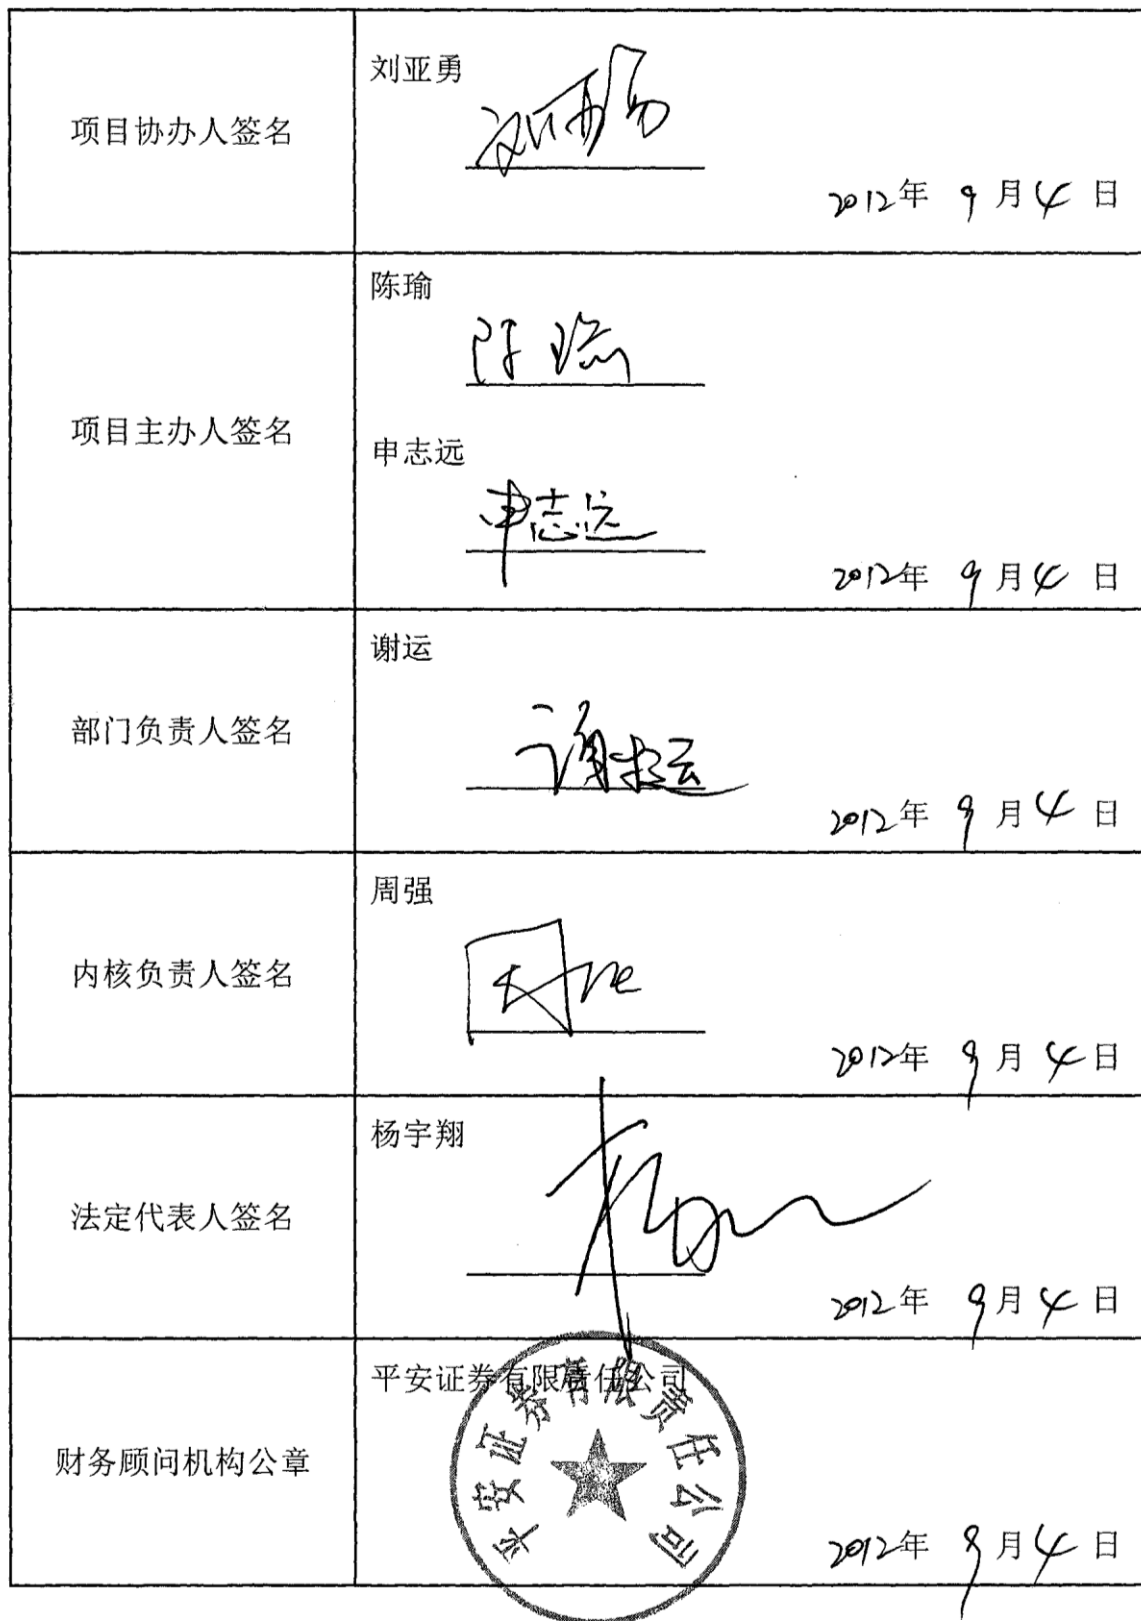 项目协办人签名
刘亚勇
刘亚勇
2012年 9月4日
项目主办人签名
陈瑜
陈瑜
申志远
申志远
2012年 9月4日
部门负责人签名
谢运
谢运
2012年 9月4日
内核负责人签名
周强
周强
2012年 9月4日
法定代表人签名
杨宇翔
2012年 9月4日
财务顾问机构公章
平安证券有限责任公司
平安证券有限责任公司
2012年 9月4日